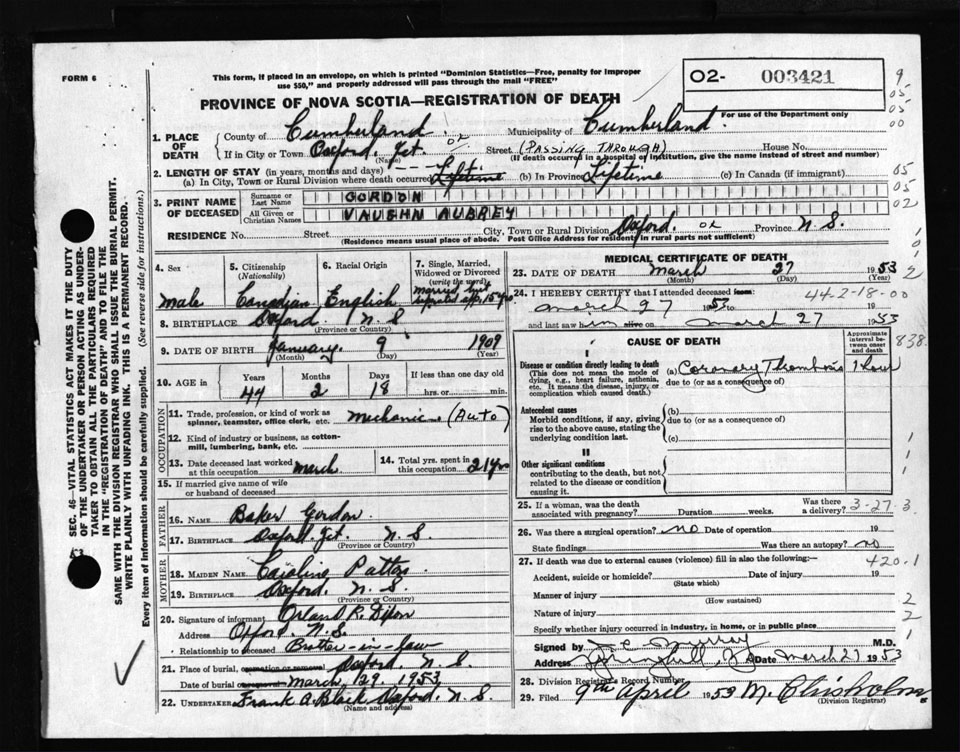 FORM 6
This form, if placed in an envelope, on which is printed "Dominion Statistics—Free, penalty for improper
use $50," and properly addressed will pass through the mail "FREE"
O2- 003421
For use of the Department only
PROVINCE OF NOVA SCOTIA—REGISTRATION OF DEATH
1. PLACE OF DEATH
County of Cumberland. Municipality of Cumberland.
If in City or Town Oxford. Jct. Street (PASSING THROUGH) House No.
(Name) (If death occurred in a hospital or institution, give the name instead of street and number)
2. LENGTH OF STAY (in years, months and days)
(a) In City, Town or Rural Division where death occurred Lifetime (b) In Province Lifetime (c) In Canada (if immigrant)
3. PRINT NAME OF DECEASED
Surname or Last Name GORDON
All Given or Christian Names VAUGHN AUBREY
RESIDENCE No. Street City, Town or Rural Division Oxford. Province N. S.
(Residence means usual place of abode. Post Office Address for resident in rural parts not sufficient)
4. Sex Male
5. Citizenship (Nationality) Canadian
6. Racial Origin English
7. Single, Married, Widowed or Divorced (write the word) Married but separated app. 15 yrs
8. BIRTHPLACE Oxford N. S
(Province or Country)
9. DATE OF BIRTH January 9 1909
(Month) (Day) (Year)
10. AGE in Years Months Days If less than one day old
44 2 18 hrs. or min.
OCCUPATION
11. Trade, profession, or kind of work as
spinner, teamster, office clerk, etc. Mechanic (Auto)
12. Kind of industry or business, as cotton-
mill, lumbering, bank, etc.
13. Date deceased last worked
at this occupation March
14. Total yrs. spent in
this occupation 21 yrs
15. If married give name of wife
or husband of deceased
FATHER
16. NAME Baker Gordon
17. BIRTHPLACE Oxford. Jct. N. S.
(Province or Country)
MOTHER
18. MAIDEN NAME Caroline
19. BIRTHPLACE Oxford. N. S
(Province or Country)
20. Signature of informant Orland R. Dixon
Address Oxford. N. S.
Relationship to deceased Brother-in-law
21. Place of burial, cremation or removal Oxford. N. S.
Date of burial March, 29. 1953.
22. UNDERTAKER Frank A. Black Oxford. N. S.
(Name and address)
MEDICAL CERTIFICATE OF DEATH
23. DATE OF DEATH March 27 1953
24. I HEREBY CERTIFY that I attended deceased from:
44-2-18-00
March 27 1953 to 19
and last saw him alive on March 27 1953
CAUSE OF DEATH
Approximate interval between onset and death
838.
I
Disease or condition directly leading to death
(This does not mean the mode of
dying, e.g., heart failure, asthenia,
etc. It means the disease, injury, or
complication which caused death.)
(a) Coronary Thrombosis 1 hour
due to (or as a consequence of)
Antecedent causes
Morbid conditions, if any, giving
rise to the above cause, stating the
underlying condition last.
(b)
due to (or as a consequence of)
(c)
II
Other significant conditions
contributing to the death, but not
related to the disease or condition
causing it.
25. If a woman, was the death
associated with pregnancy? Duration weeks. Was there a delivery?
3-27-3
26. Was there a surgical operation? no Date of operation 19
State findings Was there an autopsy? no
27. If death was due to external causes (violence) fill in also the following:—
420.1
Accident, suicide or homicide? Date of injury 19
(State which)
Manner of injury
(How sustained)
Nature of injury
Specify whether injury occurred in industry, in home, or in public place
Signed by Murray M.D.
Address Springhill, Date March 27 1953
28. Division Registrar's Record Number
29. Filed 9th April 1953 M. Chisholm
(Division Registrar)
SEC. 46—VITAL STATISTICS ACT MAKES IT THE DUTY
OF THE UNDERTAKER OR PERSON ACTING AS UNDER-
TAKER TO OBTAIN ALL THE PARTICULARS REQUIRED
IN THE "REGISTRATION OF DEATH" AND TO FILE THE
SAME WITH THE DIVISION REGISTRAR WHO SHALL ISSUE THE BURIAL PERMIT.
WRITE PLAINLY WITH UNFADING INK. THIS IS A PERMANENT RECORD.
Every item of information should be carefully supplied. (See reverse side for instructions.)